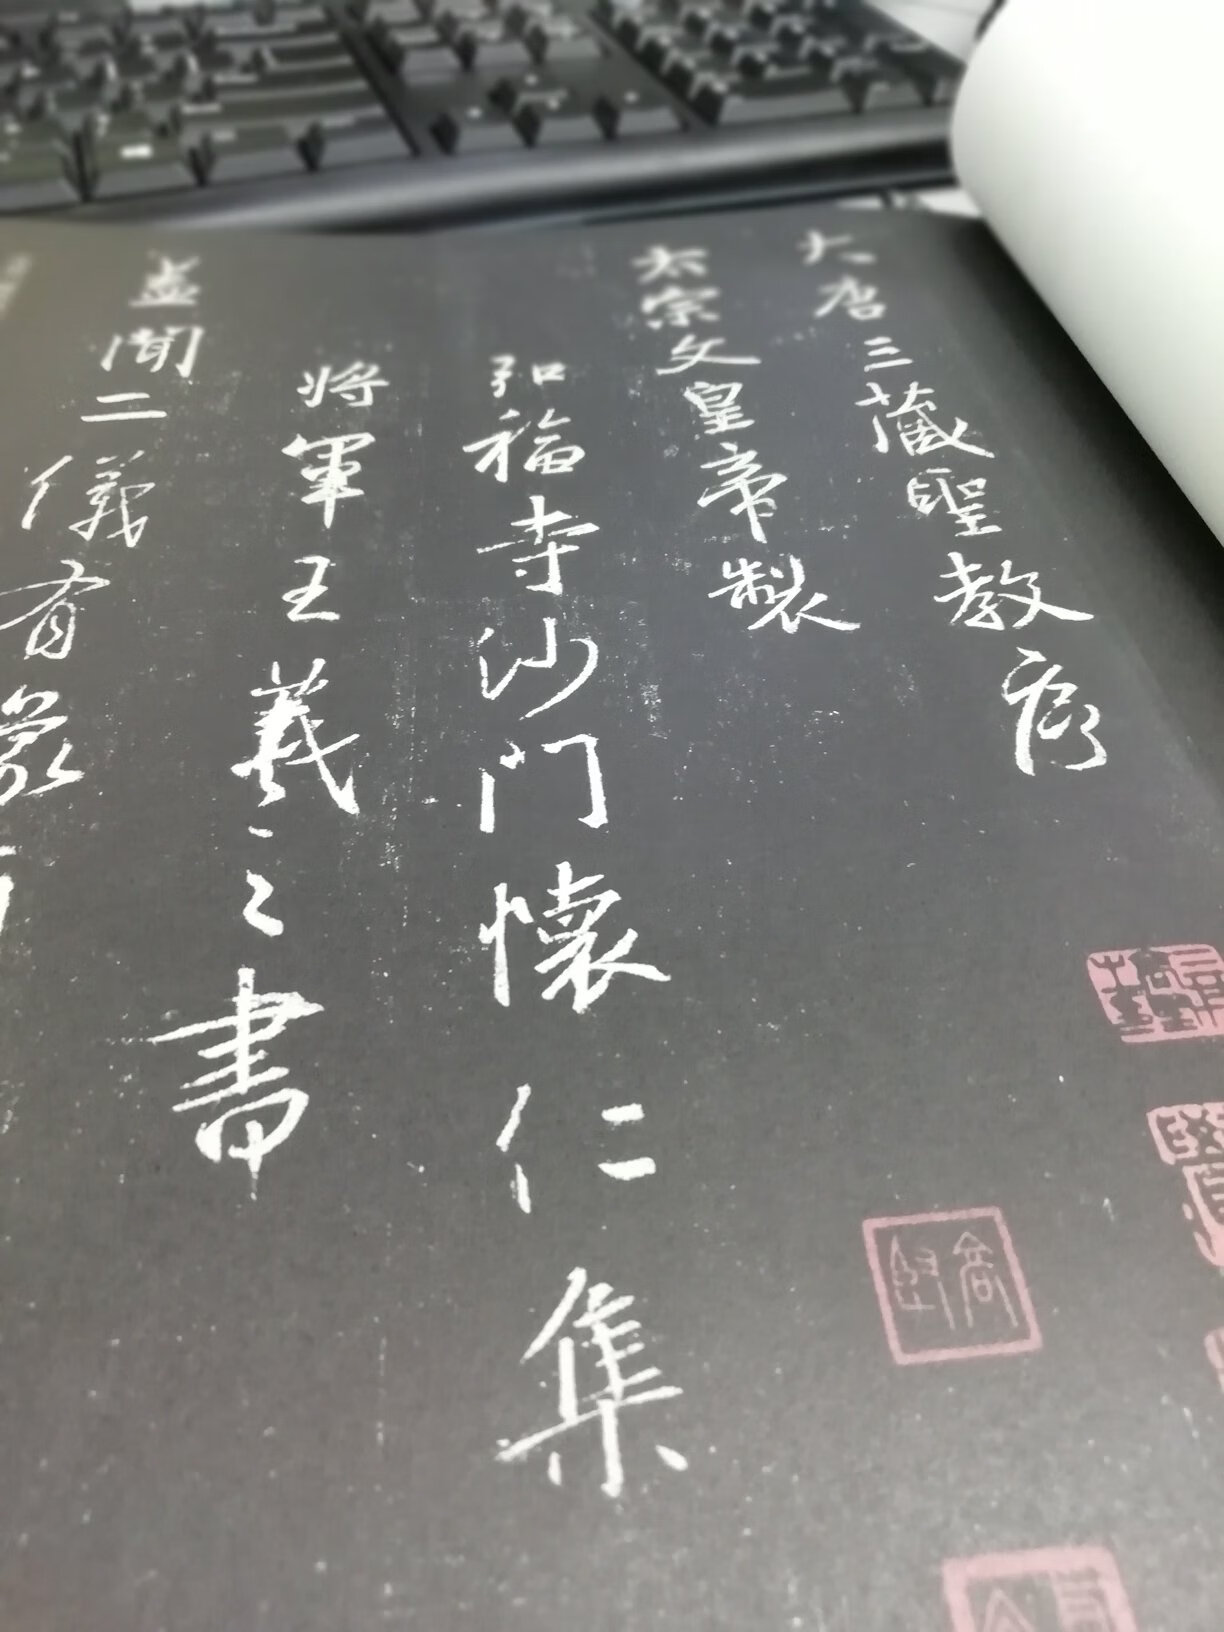 大唐三藏聖教序
太宗文皇帝製
弘福寺沙門懷仁集
將軍王羲之書
盖聞二儀有象